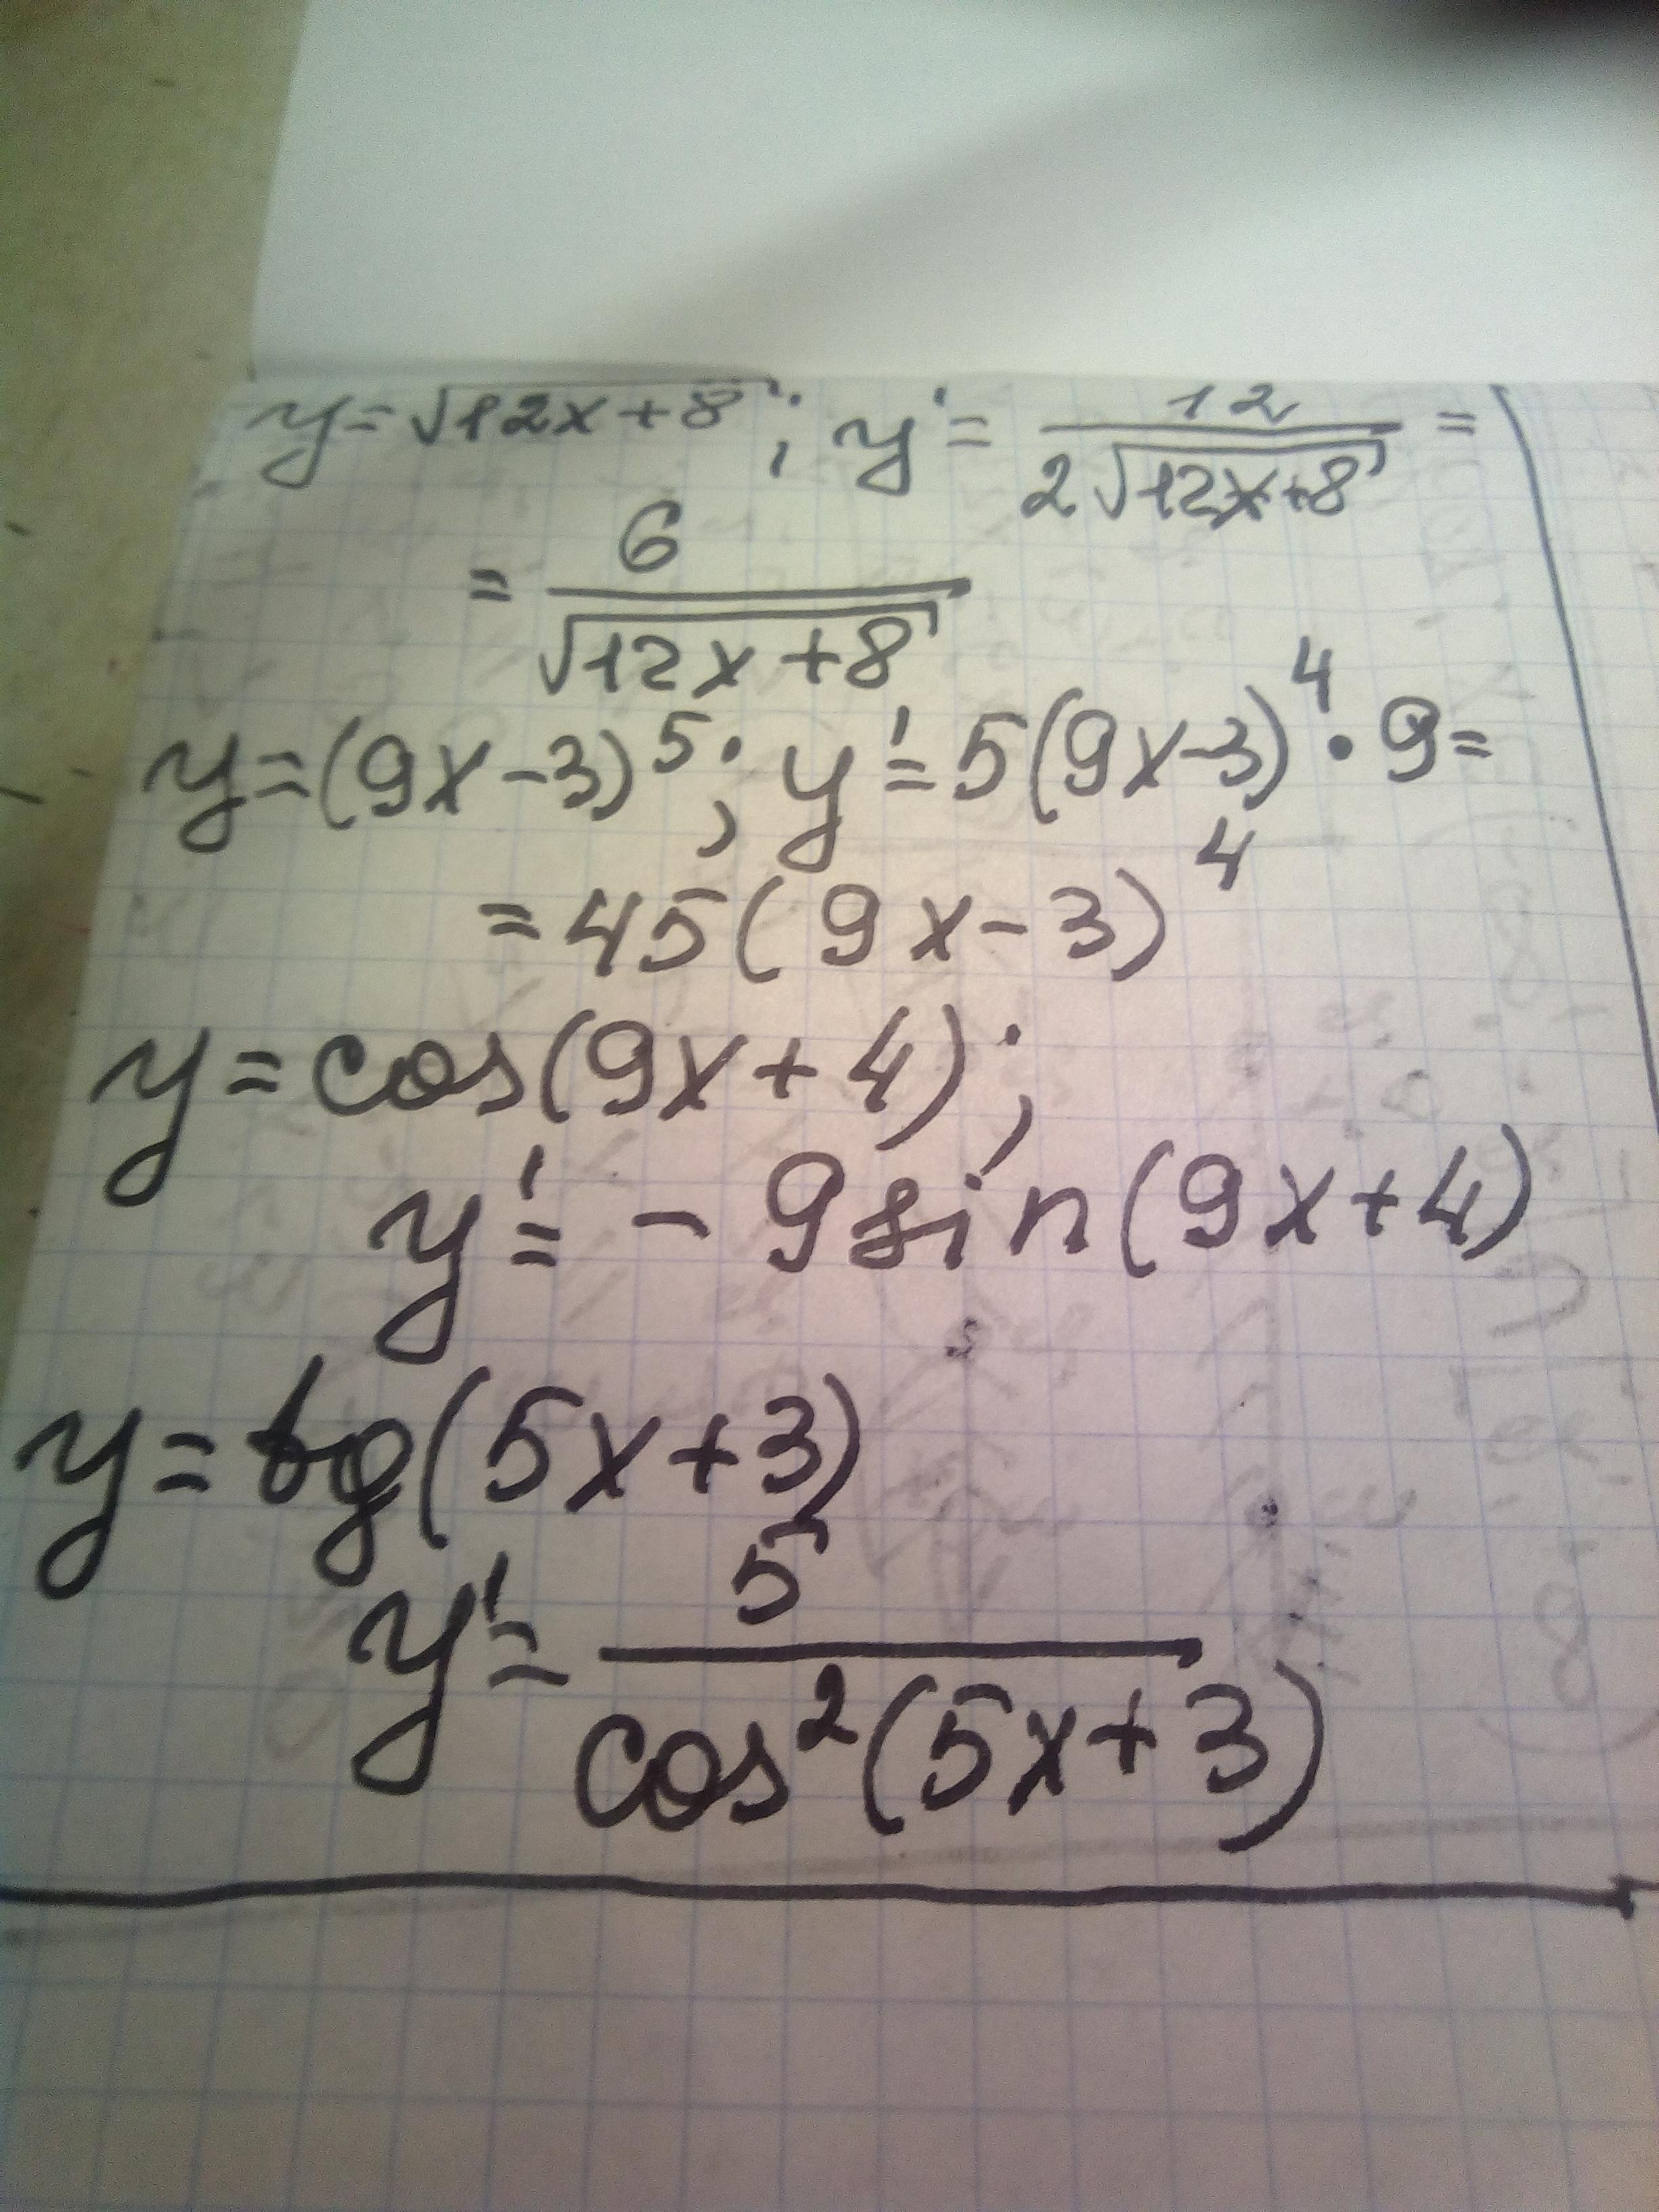 y = √(12x+8); y' = 12/(2√(12x+8)) =
= 6/√(12x+8)
y = (9x-3)⁵; y' = 5(9x-3)⁴ · 9 =
= 45(9x-3)⁴
y = cos(9x+4);
y' = - 9 sin(9x+4)
y = tg(5x+3)
y' = 5/cos²(5x+3)